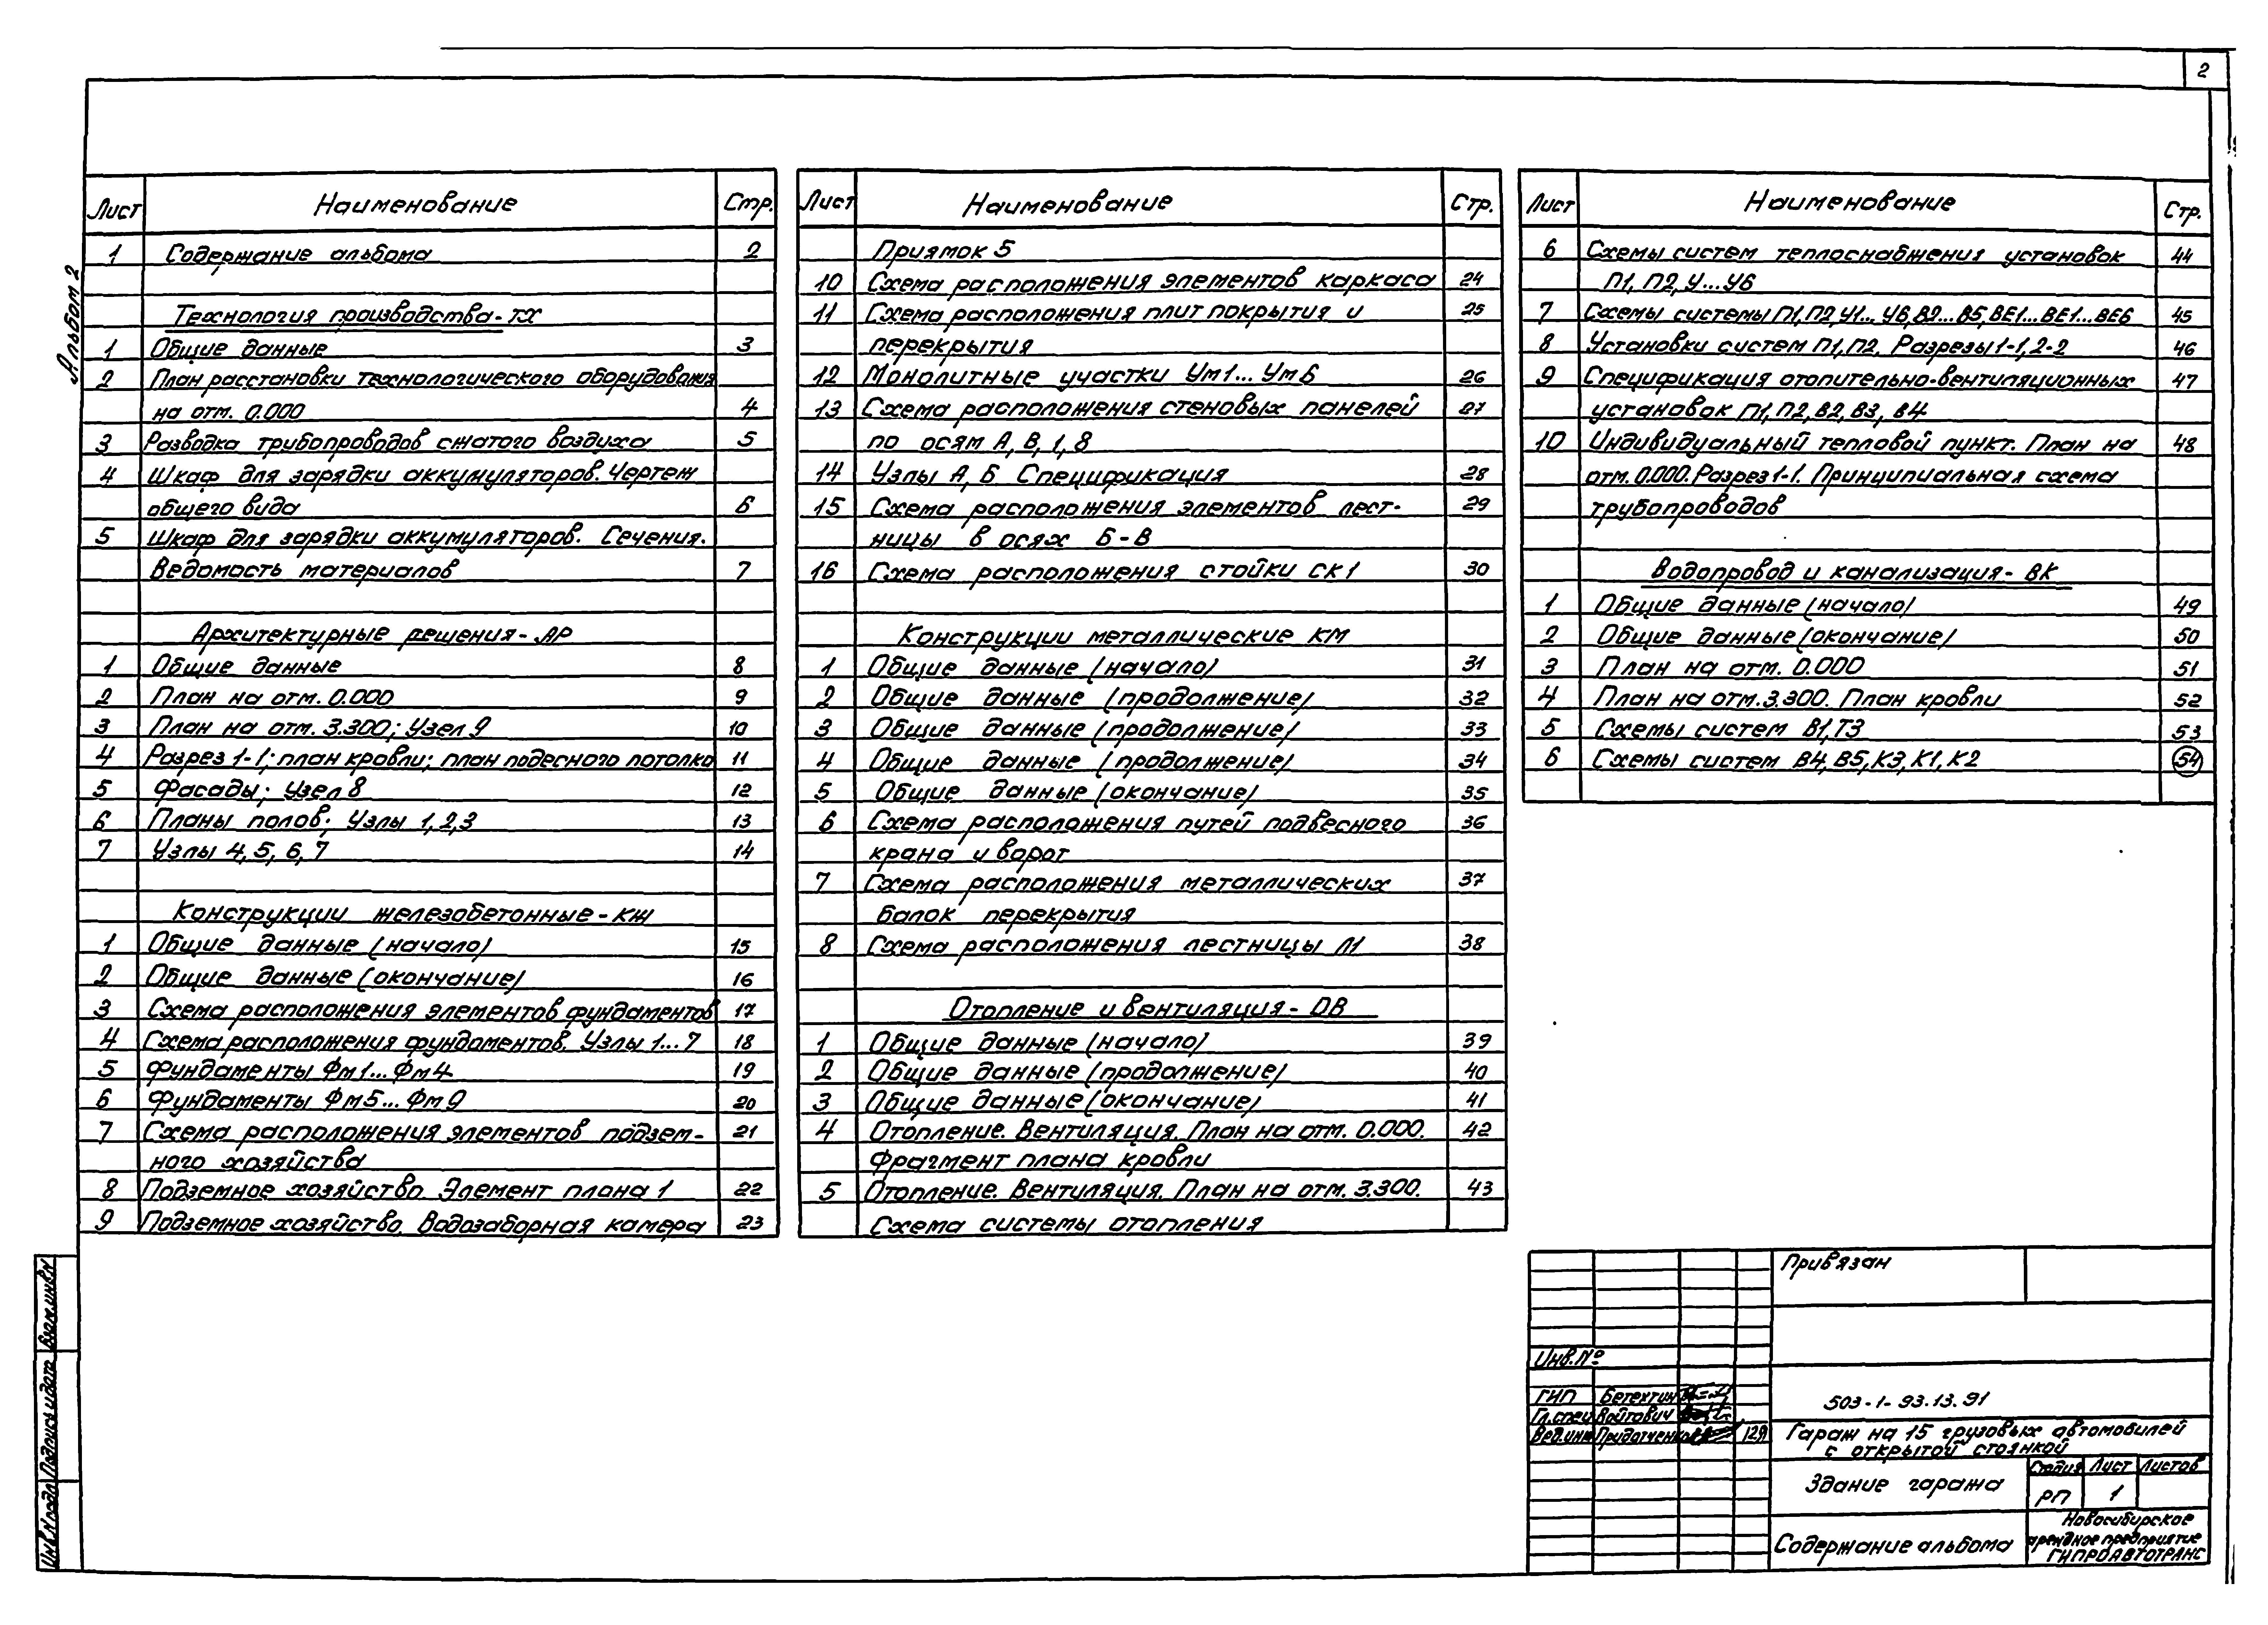 2
Альбом 2
Лист Наименование Стр.
1 Содержание альбома 2
Технология производства-ТХ
1 Общие данные 3
2 План расстановки технологического оборудования
на отм. 0.000 4
3 Разводка трубопроводов сжатого воздуха 5
4 Шкаф для зарядки аккумуляторов. Чертеж
общего вида 6
5 Шкаф для зарядки аккумуляторов. Сечения.
Ведомость материалов 7
Архитектурные решения-АР
1 Общие данные 8
2 План на отм. 0.000 9
3 План на отм. 3.300; Узел 9 10
4 Разрез 1-1; план кровли; план подесного потолка 11
5 Фасады; Узел 8 12
6 Планы полов. Узлы 1,2,3 13
7 Узлы 4, 5, 6, 7 14
Конструкции железобетонные-КЖ
1 Общие данные (начало) 15
2 Общие данные (окончание) 16
3 Схема расположения элементов фундаментов 17
4 Схема расположения фундаментов. Узлы 1...7 18
5 Фундаменты Фм1...Фм4 19
6 Фундаменты Фм5...Фм9 20
7 Схема расположения элементов подзем- 21
ного хозяйства
8 Подземное хозяйство. Элемент плана 1 22
9 Подземное хозяйство. Водозаборная камера 23
Лист Наименование Стр.
Приямок 5
10 Схема расположения элементов каркаса 24
11 Схема расположения плит покрытия и 25
перекрытия
12 Монолитные участки Ум1...Ум6 26
13 Схема расположения стеновых панелей 27
по осям А, В, 1, 8
14 Узлы А, Б. Спецификация 28
15 Схема расположения элементов лест- 29
ницы в осях Б-В
16 Схема расположения стойки СК1 30
Конструкции металлические КМ
1 Общие данные (начало) 31
2 Общие данные (продолжение) 32
3 Общие данные (продолжение) 33
4 Общие данные (продолжение) 34
5 Общие данные (окончание) 35
6 Схема расположения путей подвесного 36
крана и ворот
7 Схема расположения металлических 37
балок перекрытия
8 Схема расположения лестницы Л1 38
Отопление и вентиляция-ОВ
1 Общие данные (начало) 39
2 Общие данные (продолжение) 40
3 Общие данные (окончание) 41
4 Отопление. Вентиляция. План на отм. 0.000. 42
Фрагмент плана кровли
5 Отопление. Вентиляция. План на отм. 3.300. 43
Схема системы отопления
Лист Наименование Стр.
6 Схемы систем теплоснабжения установок 44
П1, П2, У...У6
7 Схемы системы П1, П2, У1...У6, В2...В5, ВЕ1...ВЕ1...ВЕ6 45
8 Установки систем П1, П2. Разрезы 1-1, 2-2 46
9 Спецификация отопительно-вентиляционных 47
установок П1, П2, В2, В3, В4
10 Индивидуальный тепловой пункт. План на 48
отм. 0.000. Разрез 1-1. Принципиальная схема
трубопроводов
Водопровод и канализация-ВК
1 Общие данные (начало) 49
2 Общие данные (окончание) 50
3 План на отм. 0.000 51
4 План на отм. 3.300. План кровли 52
5 Схемы систем В1, Т3 53
6 Схемы систем В4, В5, К3, К1, К2 54
Привязан
Инв.№
ГИП Бетехтин
Гл.спец Войтович
Вед.инж
503-1-93.13.91
Гараж на 15 грузовых автомобилей
с открытой стоянкой
Здание гаража
Стадия Лист Листов
РП 1
Содержание альбома
Новосибирское
арендное предприятие
ГИПРОАВТОТРАНС
Взам.инв.N
Подпись и дата
Инв.N подл